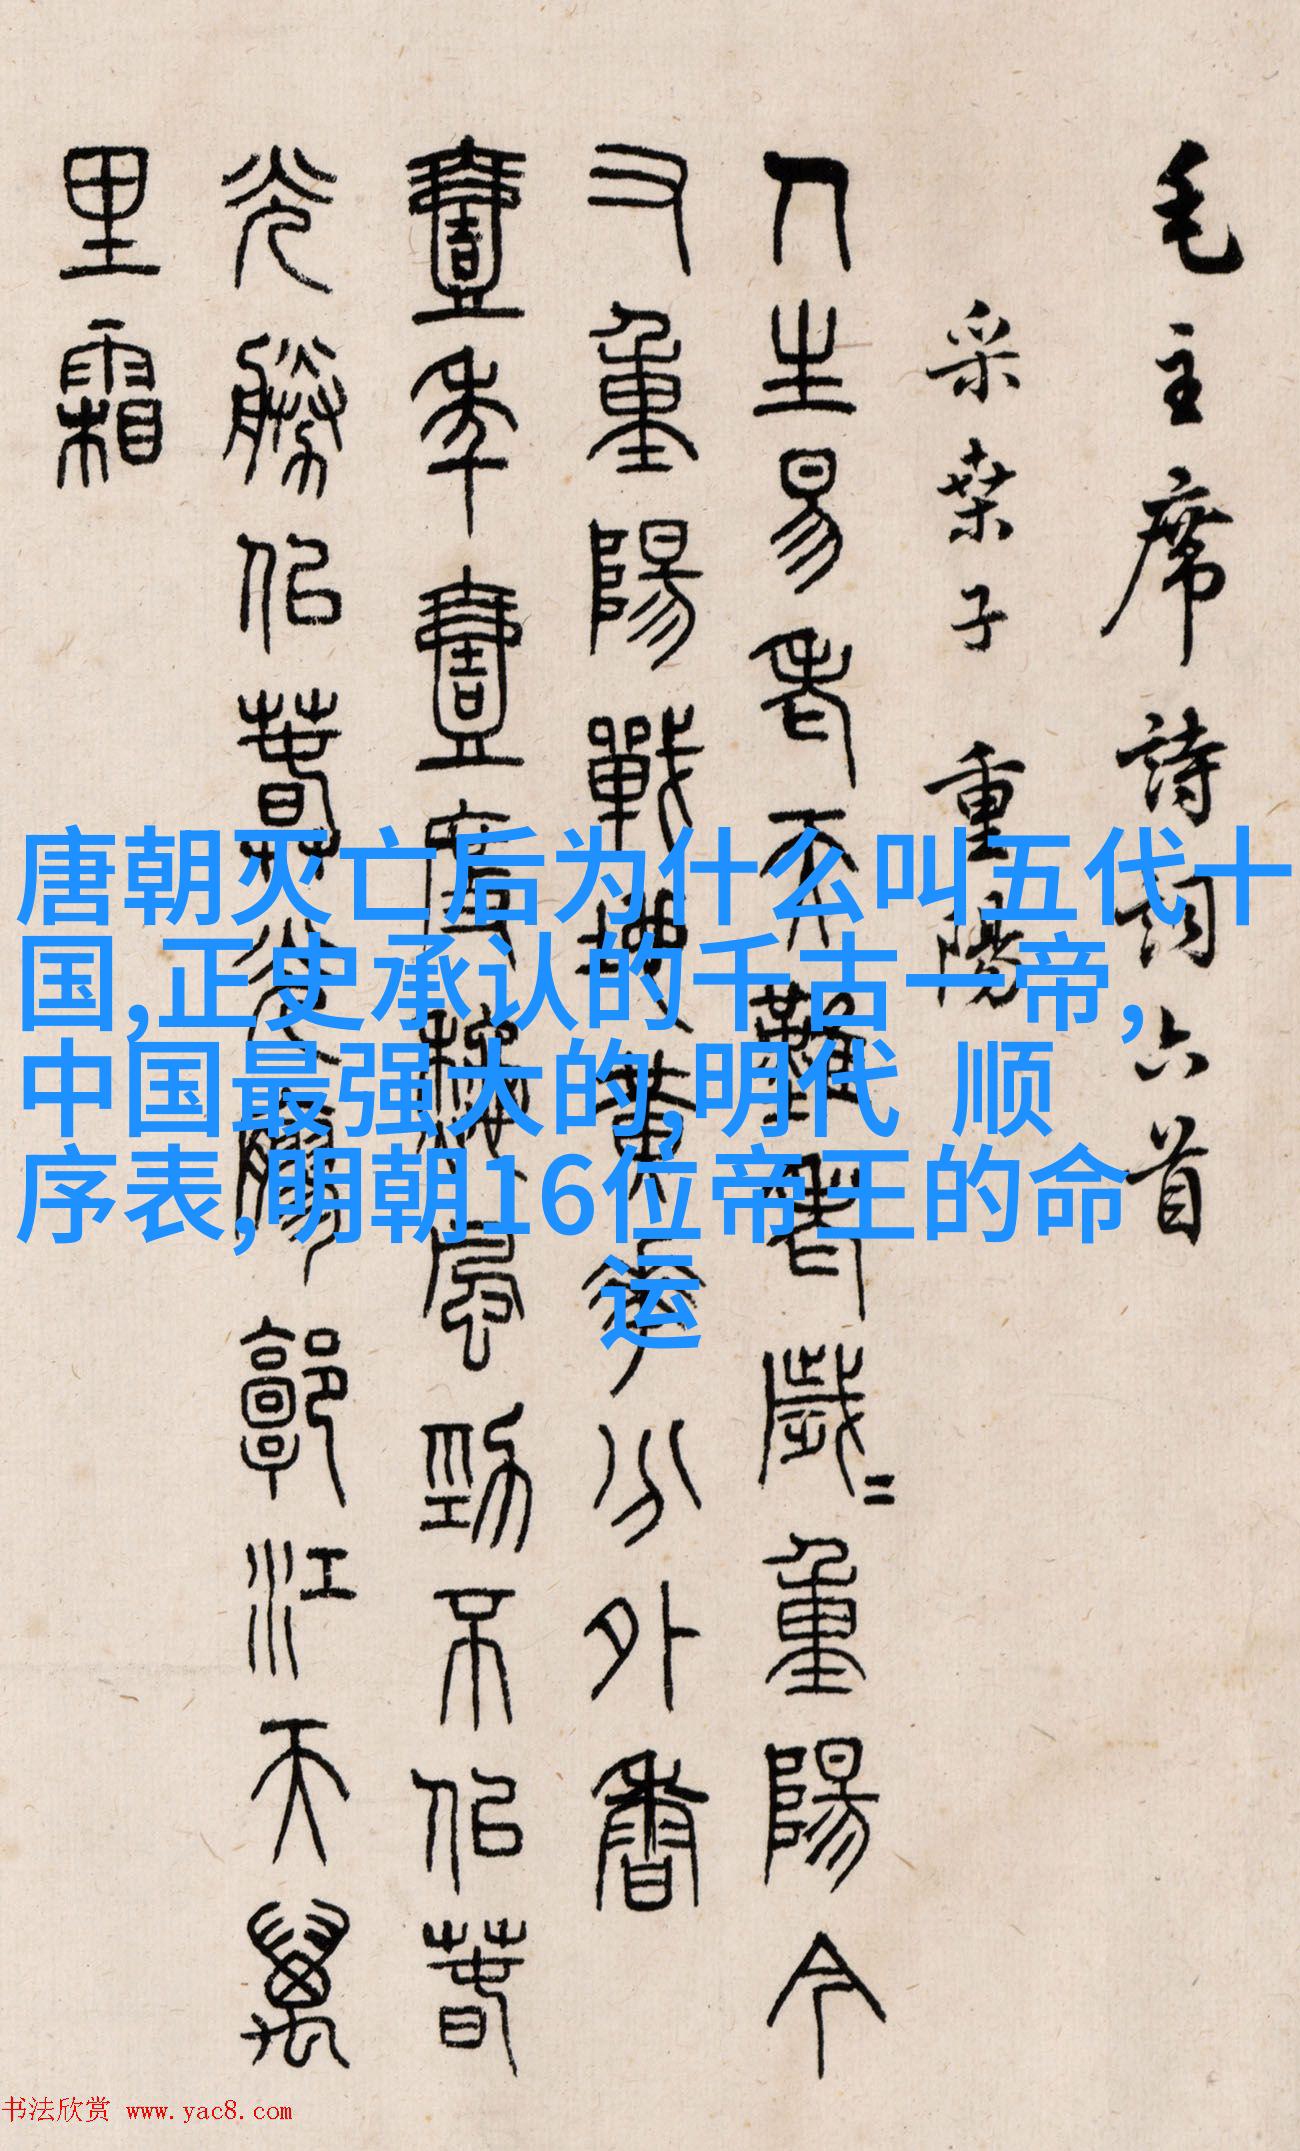 毛主席詩詞六首
采桒子 重陽
人生易老天難老歲=重陽今
又重陽戰地黃華分外香
壹年壹度穐風勁不佀萅
光勝佀萅光郭江天萬
里霜
唐朝灭亡后为什么叫五代十
国,正史承认的千古一帝,
中国最强大的,明代 顺
序表,明朝16位帝王的命
运
书法欣赏 www.yac8.com